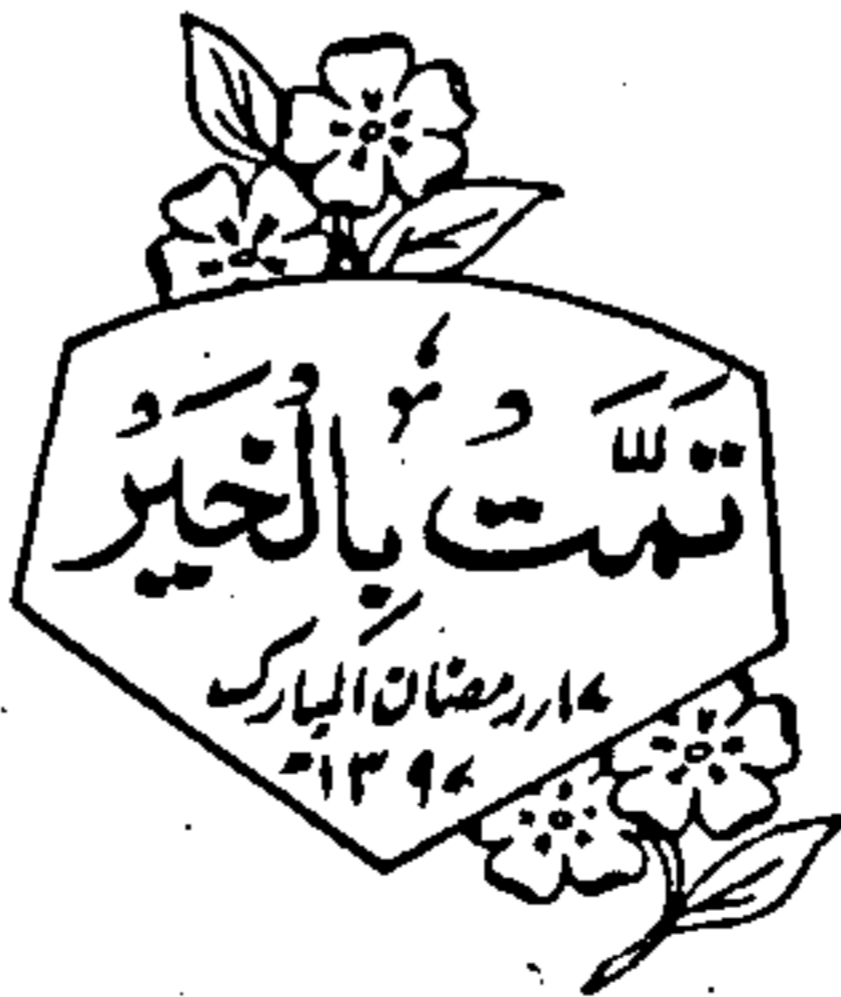 تَمَّتُ بِالُخَیَرُ
۱۷؍ رمضان المبارک
۱۳۹۷ھ